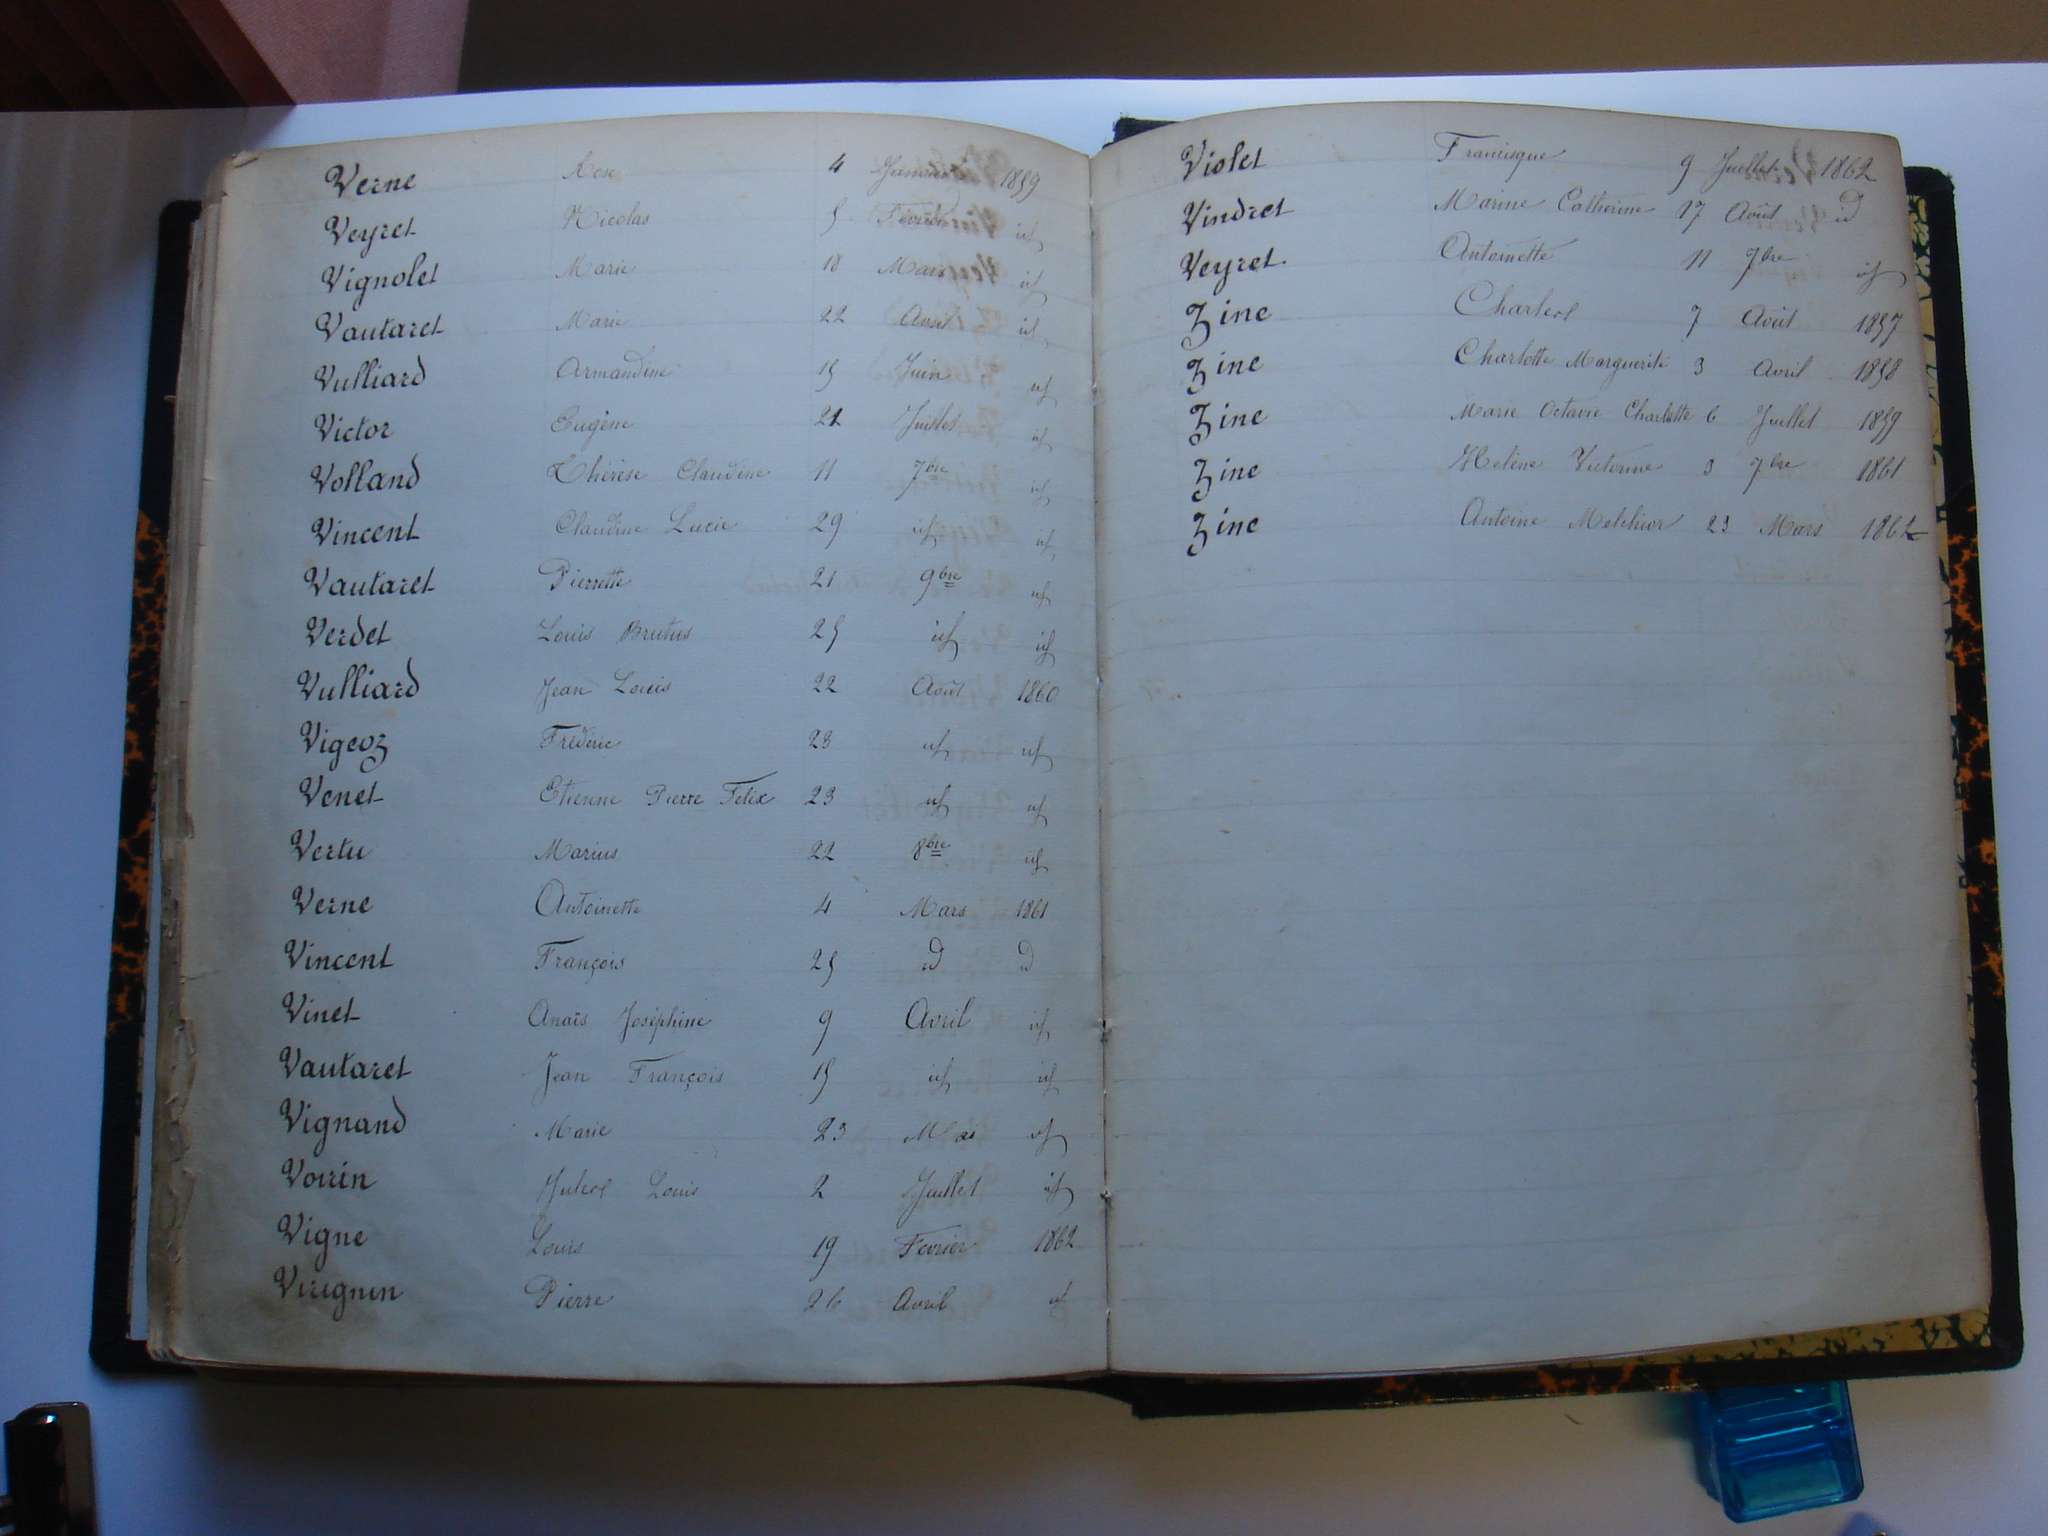 Verne Rose 4 Janvier 1859
Veyret Nicolas 5 Février id
Vignolet Marie 18 Mars id
Vautaret Marie 22 Avril id
Vulliard Armandine 15 Juin id
Victor Eugène 21 Juillet id
Volland Thérèse Claudine 11 7bre id
Vincent Claudine Lucie 29 id id
Vautaret Pierrette 21 9bre id
Verdet Louis Brutus 25 id id
Vulliard Jean Louis 22 Août 1860
Vigeoz Frédéric 23 id id
Venet Etienne Pierre Felix 23 id id
Vertu Marius 22 8bre id
Verne Antoinette 4 Mars 1861
Vincent François 25 id id
Vinet Anaïs Joséphine 9 Avril id
Vautaret Jean François 15 id id
Vignand Marie 23 Mai id
Voirin Jules Louis 2 Juillet id
Vigne Louis 19 Fevrier 1862
Pierre 26 Avril id
Violet Francisque 9 Juillet 1862
Vindret Marine Catherine 17 Août id
Veyret Antoinette 11 7bre id
Zine Charles 7 Août 1857
Zine Charlotte Marguerite 3 Avril 1858
Zine Marie Octavie Charlotte 6 Juillet 1859
Zine Helène Victorine 3 7bre 1861
Zine Antoine Melchior 23 Mars 1862